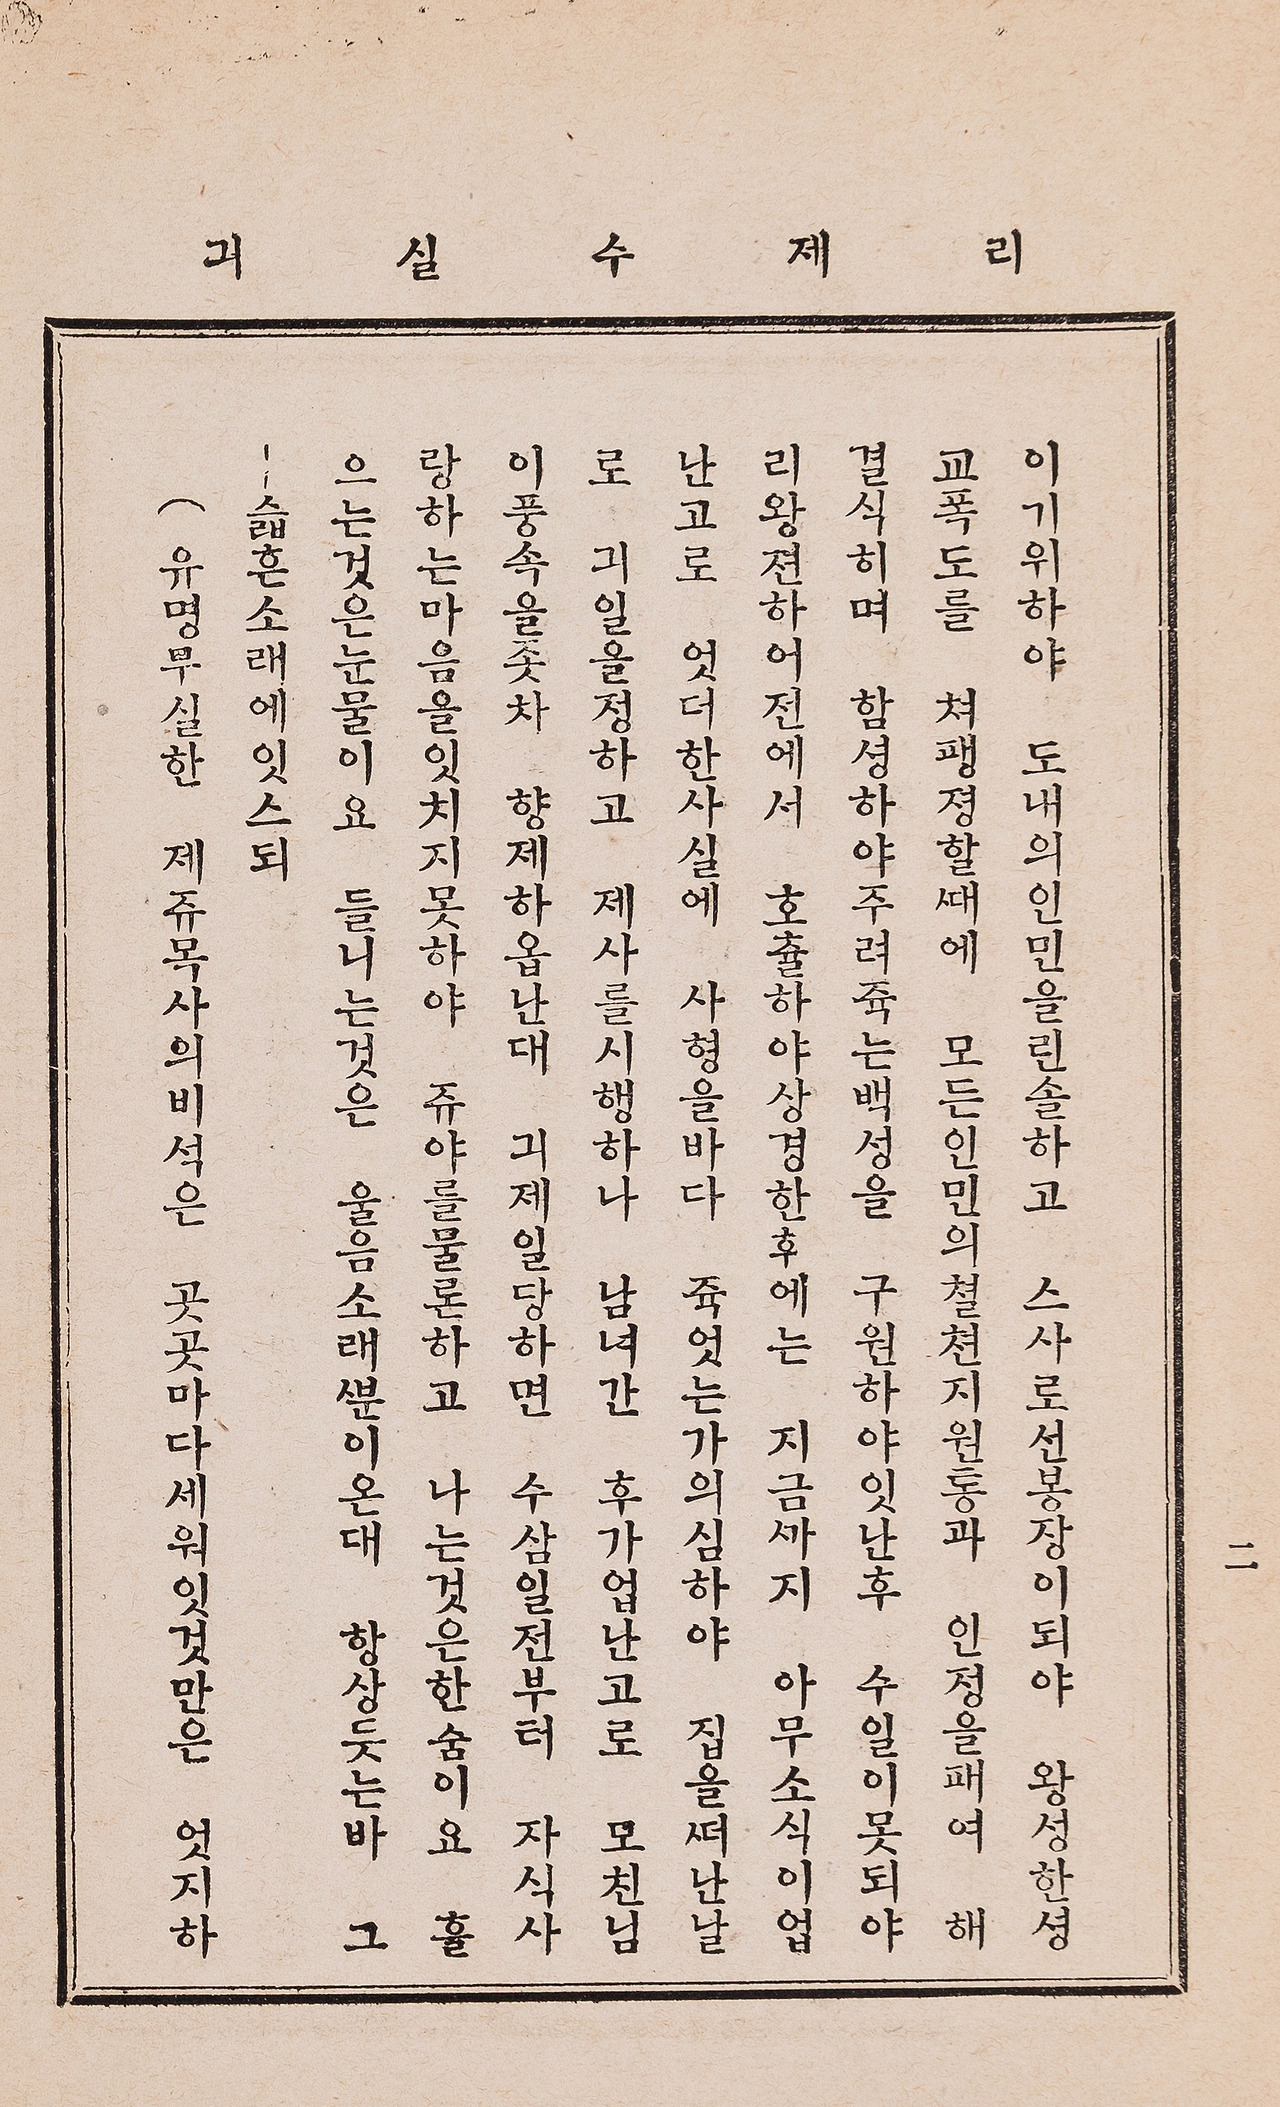 리 제 수 실 긔
이기위하야 도내의인민을린솔하고 스사로선봉장이되야 왕성한셩
교폭도를 쳐팽졍할때에 모든인민의쳘쳔지원통과 인정을패여 해
결식히며 함셩하야주려쥭는백성을 구원하야잇난후 수일이못되야
리왕젼하어전에서 호츌하야상경한후에는 지금ᄭᅡ지 아무소식이업
난고로 엇더한사실에 사형을바다 쥭엇는가의심하야 집을ᄯᅥ난날
로 긔일을정하고 제사를시행하나 남녀간 후가업난고로 모친님
이풍속을좃차 향제하옵난대 긔제일당하면 수삼일전부터 자식사
랑하는마음을잇치지못하야 쥬야를물론하고 나는것은한숨이요 흘
으는것은눈물이요 들니는것은 울음소래ᄲᅮᆫ이온대 항상듯는바 그
ㅣ슯흔소래에잇스되
( 유명무실한 제쥬목사의비석은 곳곳마다세워잇것만은 엇지하
二